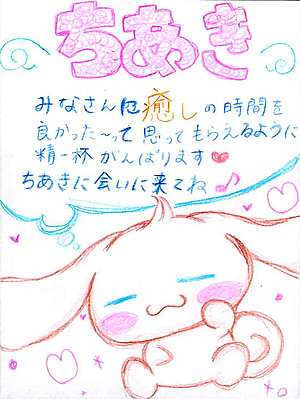 ちあき
みなさんに癒しの時間を
良かった〜って思ってもらえるように
精一杯がんばります❤
ちあきに会いに来てね♪